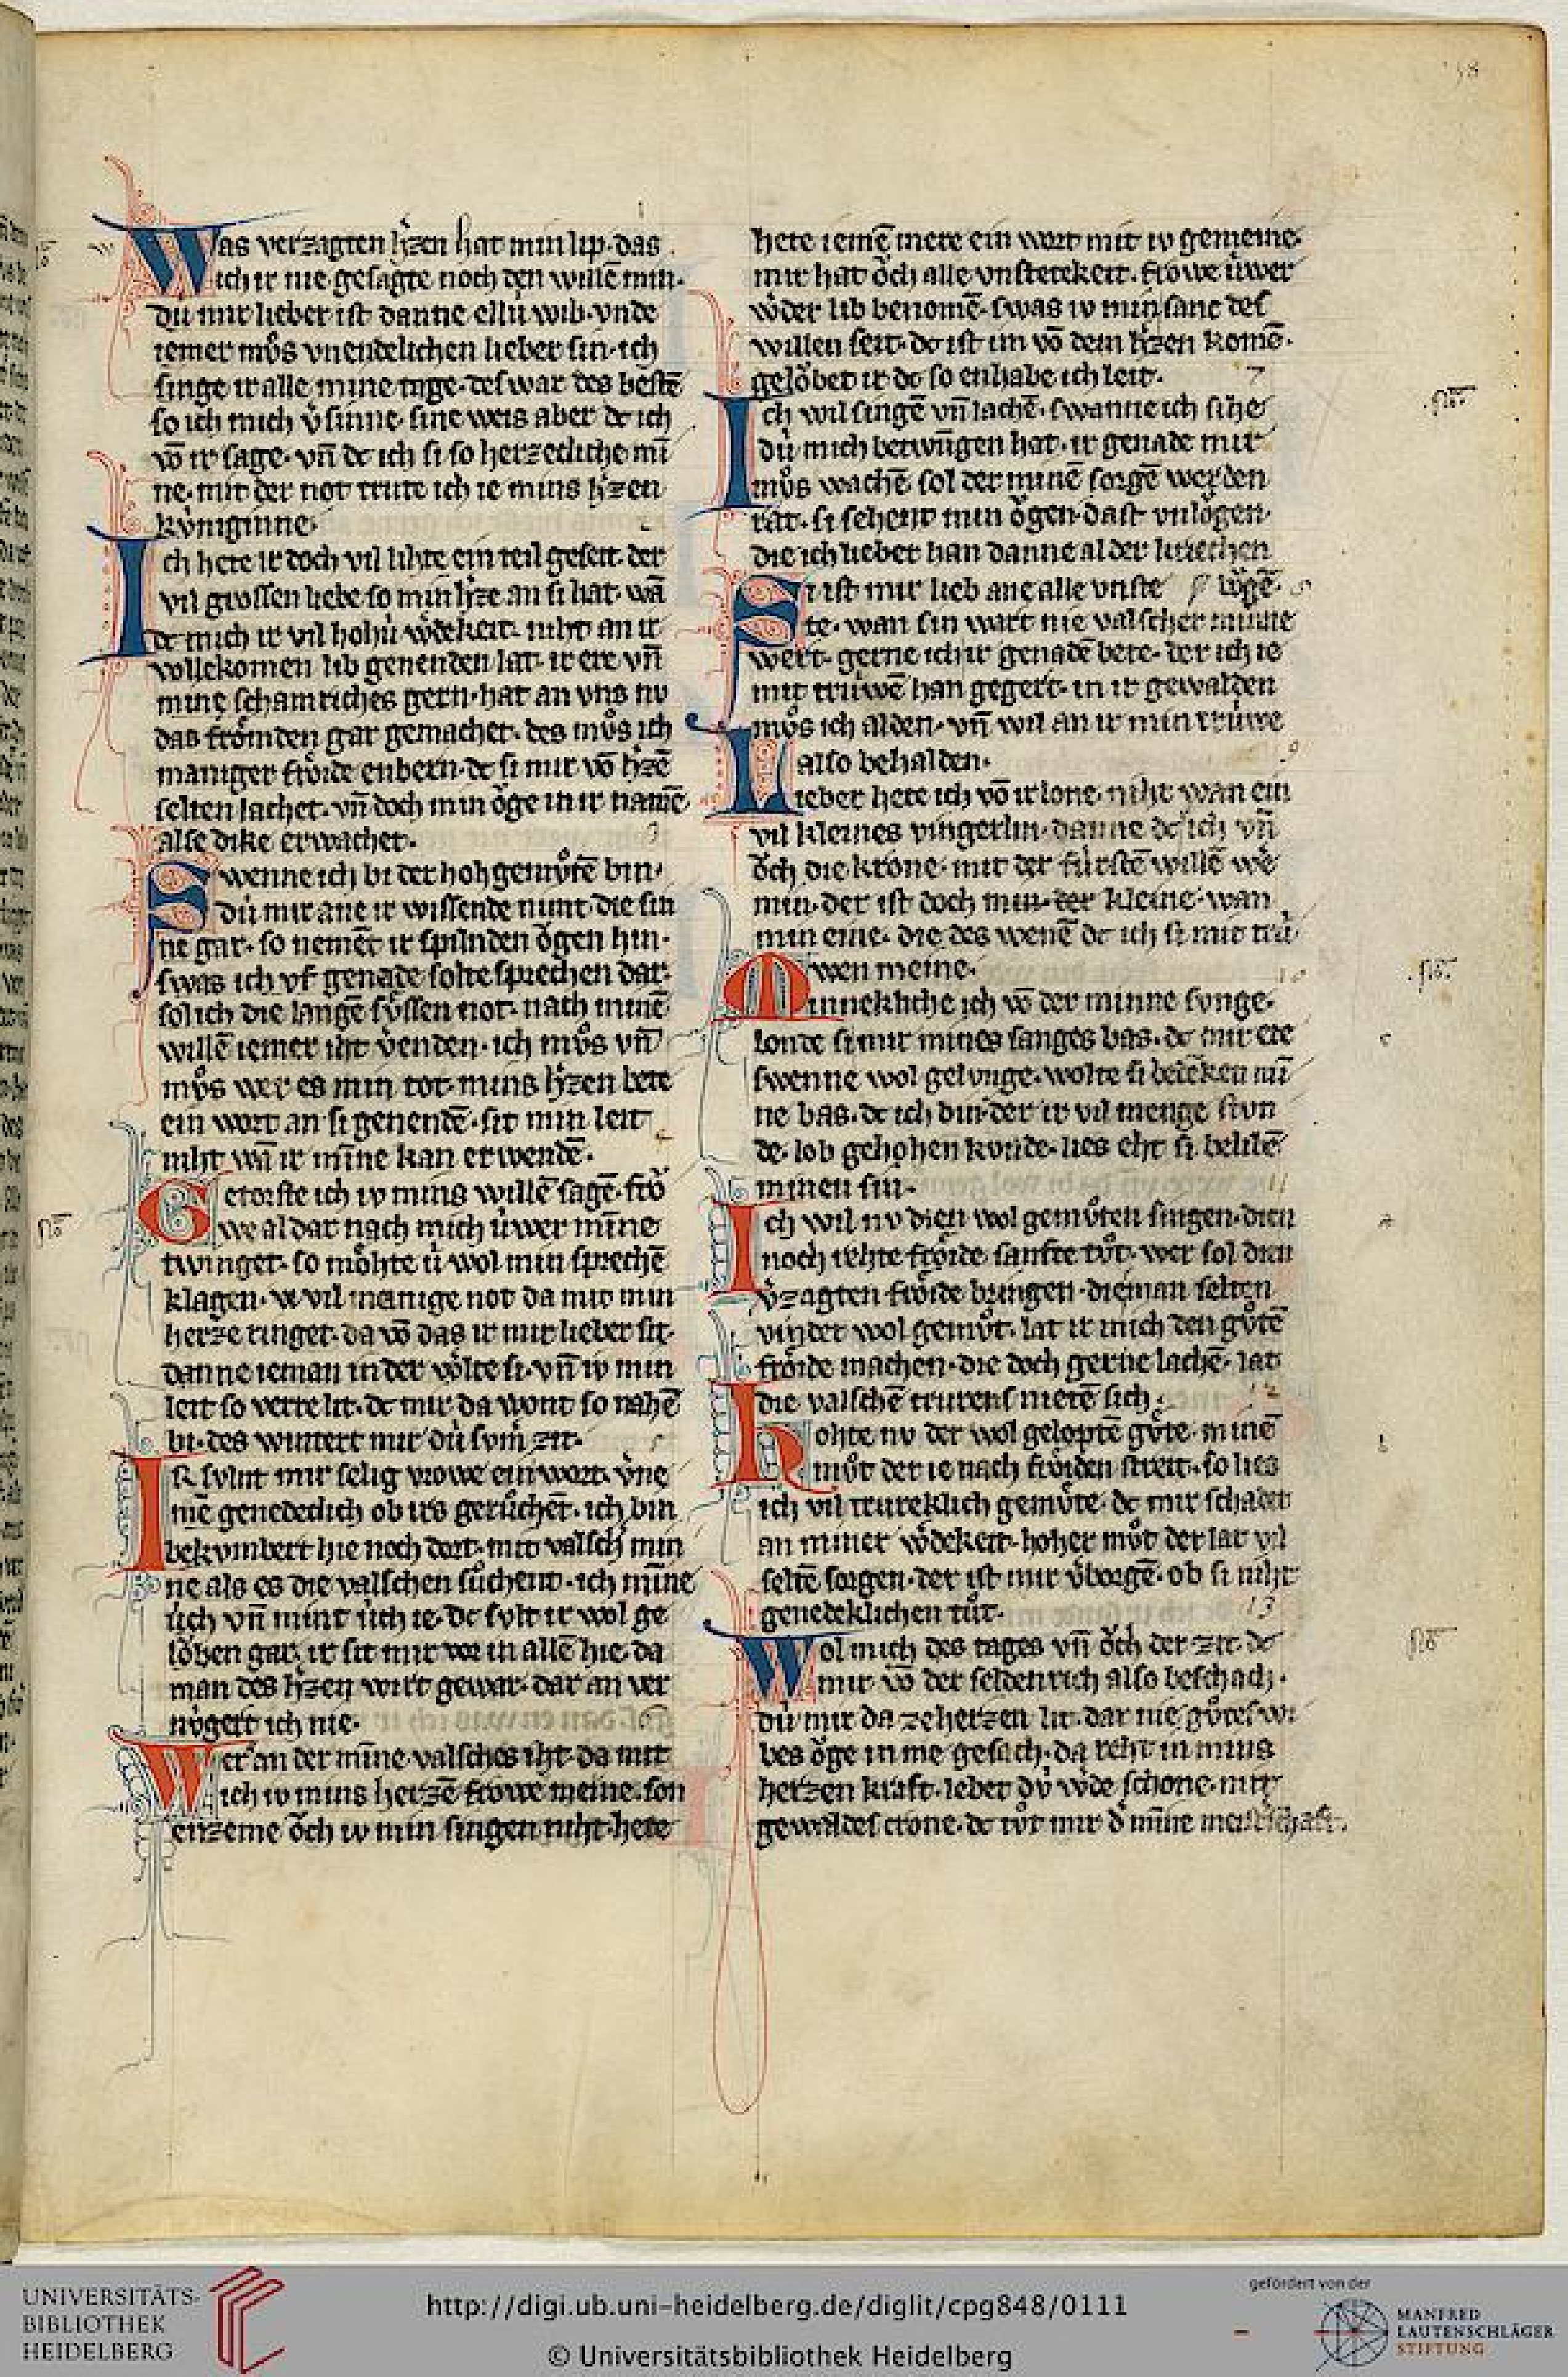 58
Was verzagten h̾zen hat min lip. das
ich ir nie gesagte noch den willē min.
dú mir lieber ist danne ellú wib. vnde
iemer mvͦs vnendelichen lieber sin. ich
singe ir alle mine tage. des war des bestē
so ich mich v̾sinne. sine weis aber dc ich
vō ir sage. vn̄ dc ich si so herzecliche mī
ne. mit der not trute ich ie mins h̾zen
kv́niginne.
Ich hete ir doch vil lihte ein teil geseit. der
vil grossen liebe so min h̾ze an si hat. wā
dc mich ir vil hohú w̾dekeit. niht an ir
vollekomen lib genenden lat. ir ere vn̄
mine schamliches gern. hat an vns nv
das frŏmden gar gemachet. des mvͦs ich
maniger frŏide enbern. dc si mir vō h̾zē
selten lachet. vn̄ doch min ŏge in ir namē
alse dike erwachet.
Swenne ich bi der hohgemvͦtē bin.
dú mir ane ir wissende nimt die sin
ne gar. so nemēt ir spilnden ŏgen hin.
swas ich vf genade solte sprechen dar.
sol ich die langē sv́ssen not. nach minē
willē iemer iht v̾enden. ich mvͦs vn̄
mvͦs wer es min tot. mins h̾zen bete
ein wort an si genendē. sit min leit
niht wā ir mīne kan erwendē.
Getorste ich iv mins willē sagē. frŏ
we al dar nach mich úwer mīne
twinget. so mŏhte ú wol min sprechē
klagen. vvil manige not da mit min
herze ringet. da vō das ir mir lieber sit.
danne ieman in der w̾lte si. vn̄ iv min
leit so verre lit. dc mir da wont so nahē
bi. des wintert mir dú svm̄ zit.
Ir svlnt mir selig vrowe ein wort. v̾ne
mē genedeclich ob irs gerŭchēt. ich bin
bekvmbert hie noch dort. mit valsch̾ min
ne als es die valschen sŭchent. ich mīne
úch vn̄ mint úch ie. dc svlt ir wol ge
lŏben gar. ir sit mir vor in allē hie. da
man des h̾zen wirt gewar. dar an ver
nŏgert ich nie.
Wer an der mīne valsches iht. da mit
ich iv mins herzē frowe meine. son
enzeme ŏch iv min singen niht. hete
hete iemē mere ein wort mit iv gemeine.
mir hat ŏch alle vnstetekeit. frowe úwer
w̾der lib benomē. swas iv min sanc des
willen seit. dc ist im vō dem h̾zen komē.
gelŏbet ir dc so enhabe ich leit. 7
Ich wil singē vn̄ lachē. swanne ich sihe
dú mich betwūgen hat. ir genade mir
mvͦs wachē sol der minē sorgē werden
rat. si sehent min ŏgen. dast vnlŏgen.
die ich lieber han danne al der kriechen
Si ist mir lieb ane alle vnste
te. wan sin wart nie valscher minne
wert. gerne ich ir genadē bete. der ich ie
mit trúwē han gegert. in ir gewalden
mvͦs ich alden. vn̄ wil an ir min trúwe
also behalden. 9
Lieber hete ich vō ir lone. niht wan ein
vil kleines vingerlin. danne dc ich vn̄
ŏch die krone. mit der fúrstē willē we
min. der ist doch min. der kleine. wan
min eine. die des wenē dc ich si mit trú
wen meine. 10
Minnekliche ich vō der minne svnge.
londe si mir mines sanges bas. dc mir ete
swenne wol gelvnge. wolte si bedēken mī
ne bas. dc ich bin der ir vil menge stvn
de. lob gehohen kvnde. lies eht si belibē
minen sin. 11
Ich wil nv dien wol gemvͦten singen. dien
noch rehte frŏide sanfte tvͦt. wer sol dien
v̾zagten frŏide bringen. die man selten
vindet wol gemvͦt. lat ir mich den gvͦtē
frŏide machen. die doch gerne lachē. lat
die valschē trurens nietē sich. 12
Rohte nv der wol geloptē gvͤte. minē
mvͦt der ie nach frŏiden streit. so lies
ich vil trureklich gemvͤte. dc mir schadet
an miner w̾dekeit. hoher mvͦt der lat vil
seltē sorgen. der ist mir v̾borgē. ob si niht
genedeklichen tvͦt. 13
Wol mich des tages vn̄ ŏch der zit. dc
mir vō der seldenrich also beschach.
dú mir da ze herzen lit. dar nie gvͦtes wi
bes ŏge in me gesach. da reht in mins
herzen kraft. lebet dú w̾de schone. mit
gewaldes crone. dc tvͦt mir d̾ mīne meisterschaft.
UNIVERSITÄTS-
BIBLIOTHEK
HEIDELBERG
http://digi.ub.uni-heidelberg.de/diglit/cpg848/0111
© Universitätsbibliothek Heidelberg
gefördert von der
MANFRED
LAUTENSCHLÄGER
STIFTUNG